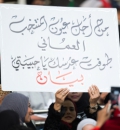 من أجل عيون المنتخب
العماني
طوفت عرسك يا حبيبتي
بيان